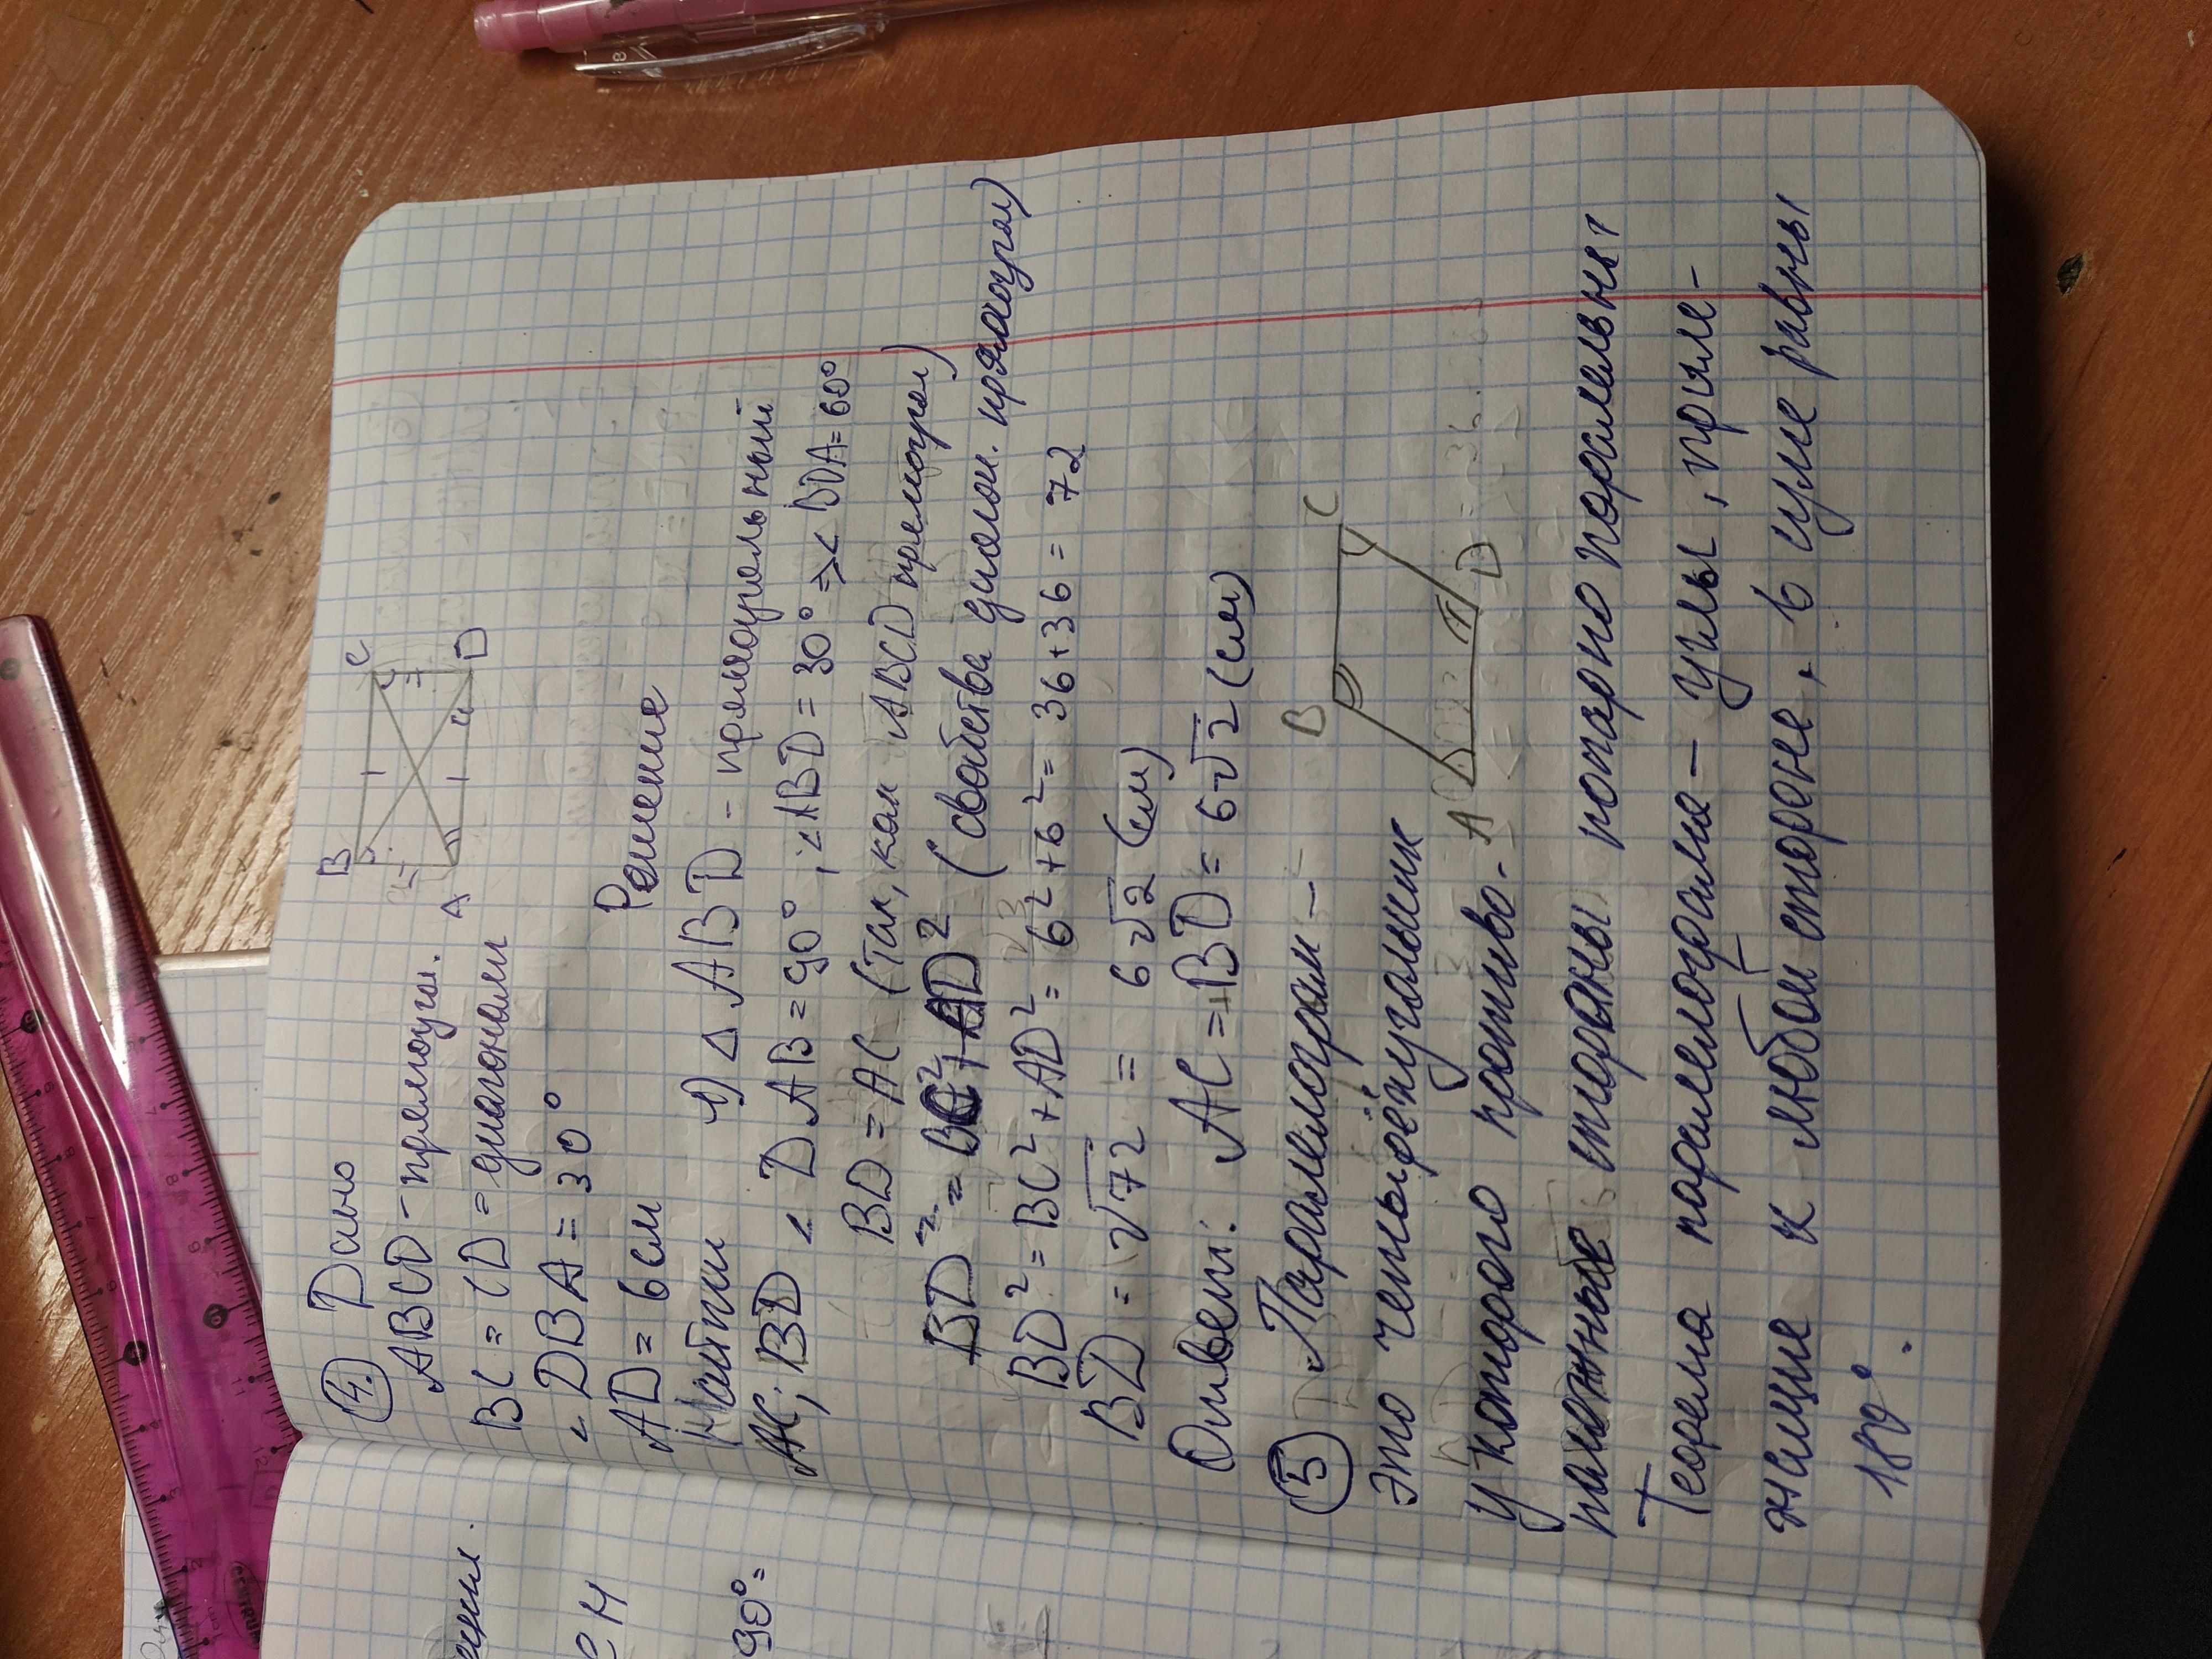 4. Дано
ABCD - прямоугол.
BC = CD = диагонали
∠DBA = 30°
AD = 6 см
Найти
AC; BD
B
C
A
D
Решение
1) △ ABD - прямоугрольный
∠ DAB = 90° ; ∠ABD = 30° => ∠ BDA = 60°
BD = AC (Так, как ABCD прямогрол)
BD² = BC² + AD² (свойства диагон. прямаоугол)
BD² = BC² + AD² = 6² + 6² = 36 + 36 = 72
BD = √72 = 6√2 (см)
Ответ: AC = BD = 6√2 (см)
5 Паралелограм —
это четырёхугольник
у которого противо-
положные стораны попарно паралельны
B
C
A
D
Теорема паралелограма — углы, приле-
жащие к любой стороне, в суме равны
180°.
ешил.
90° =